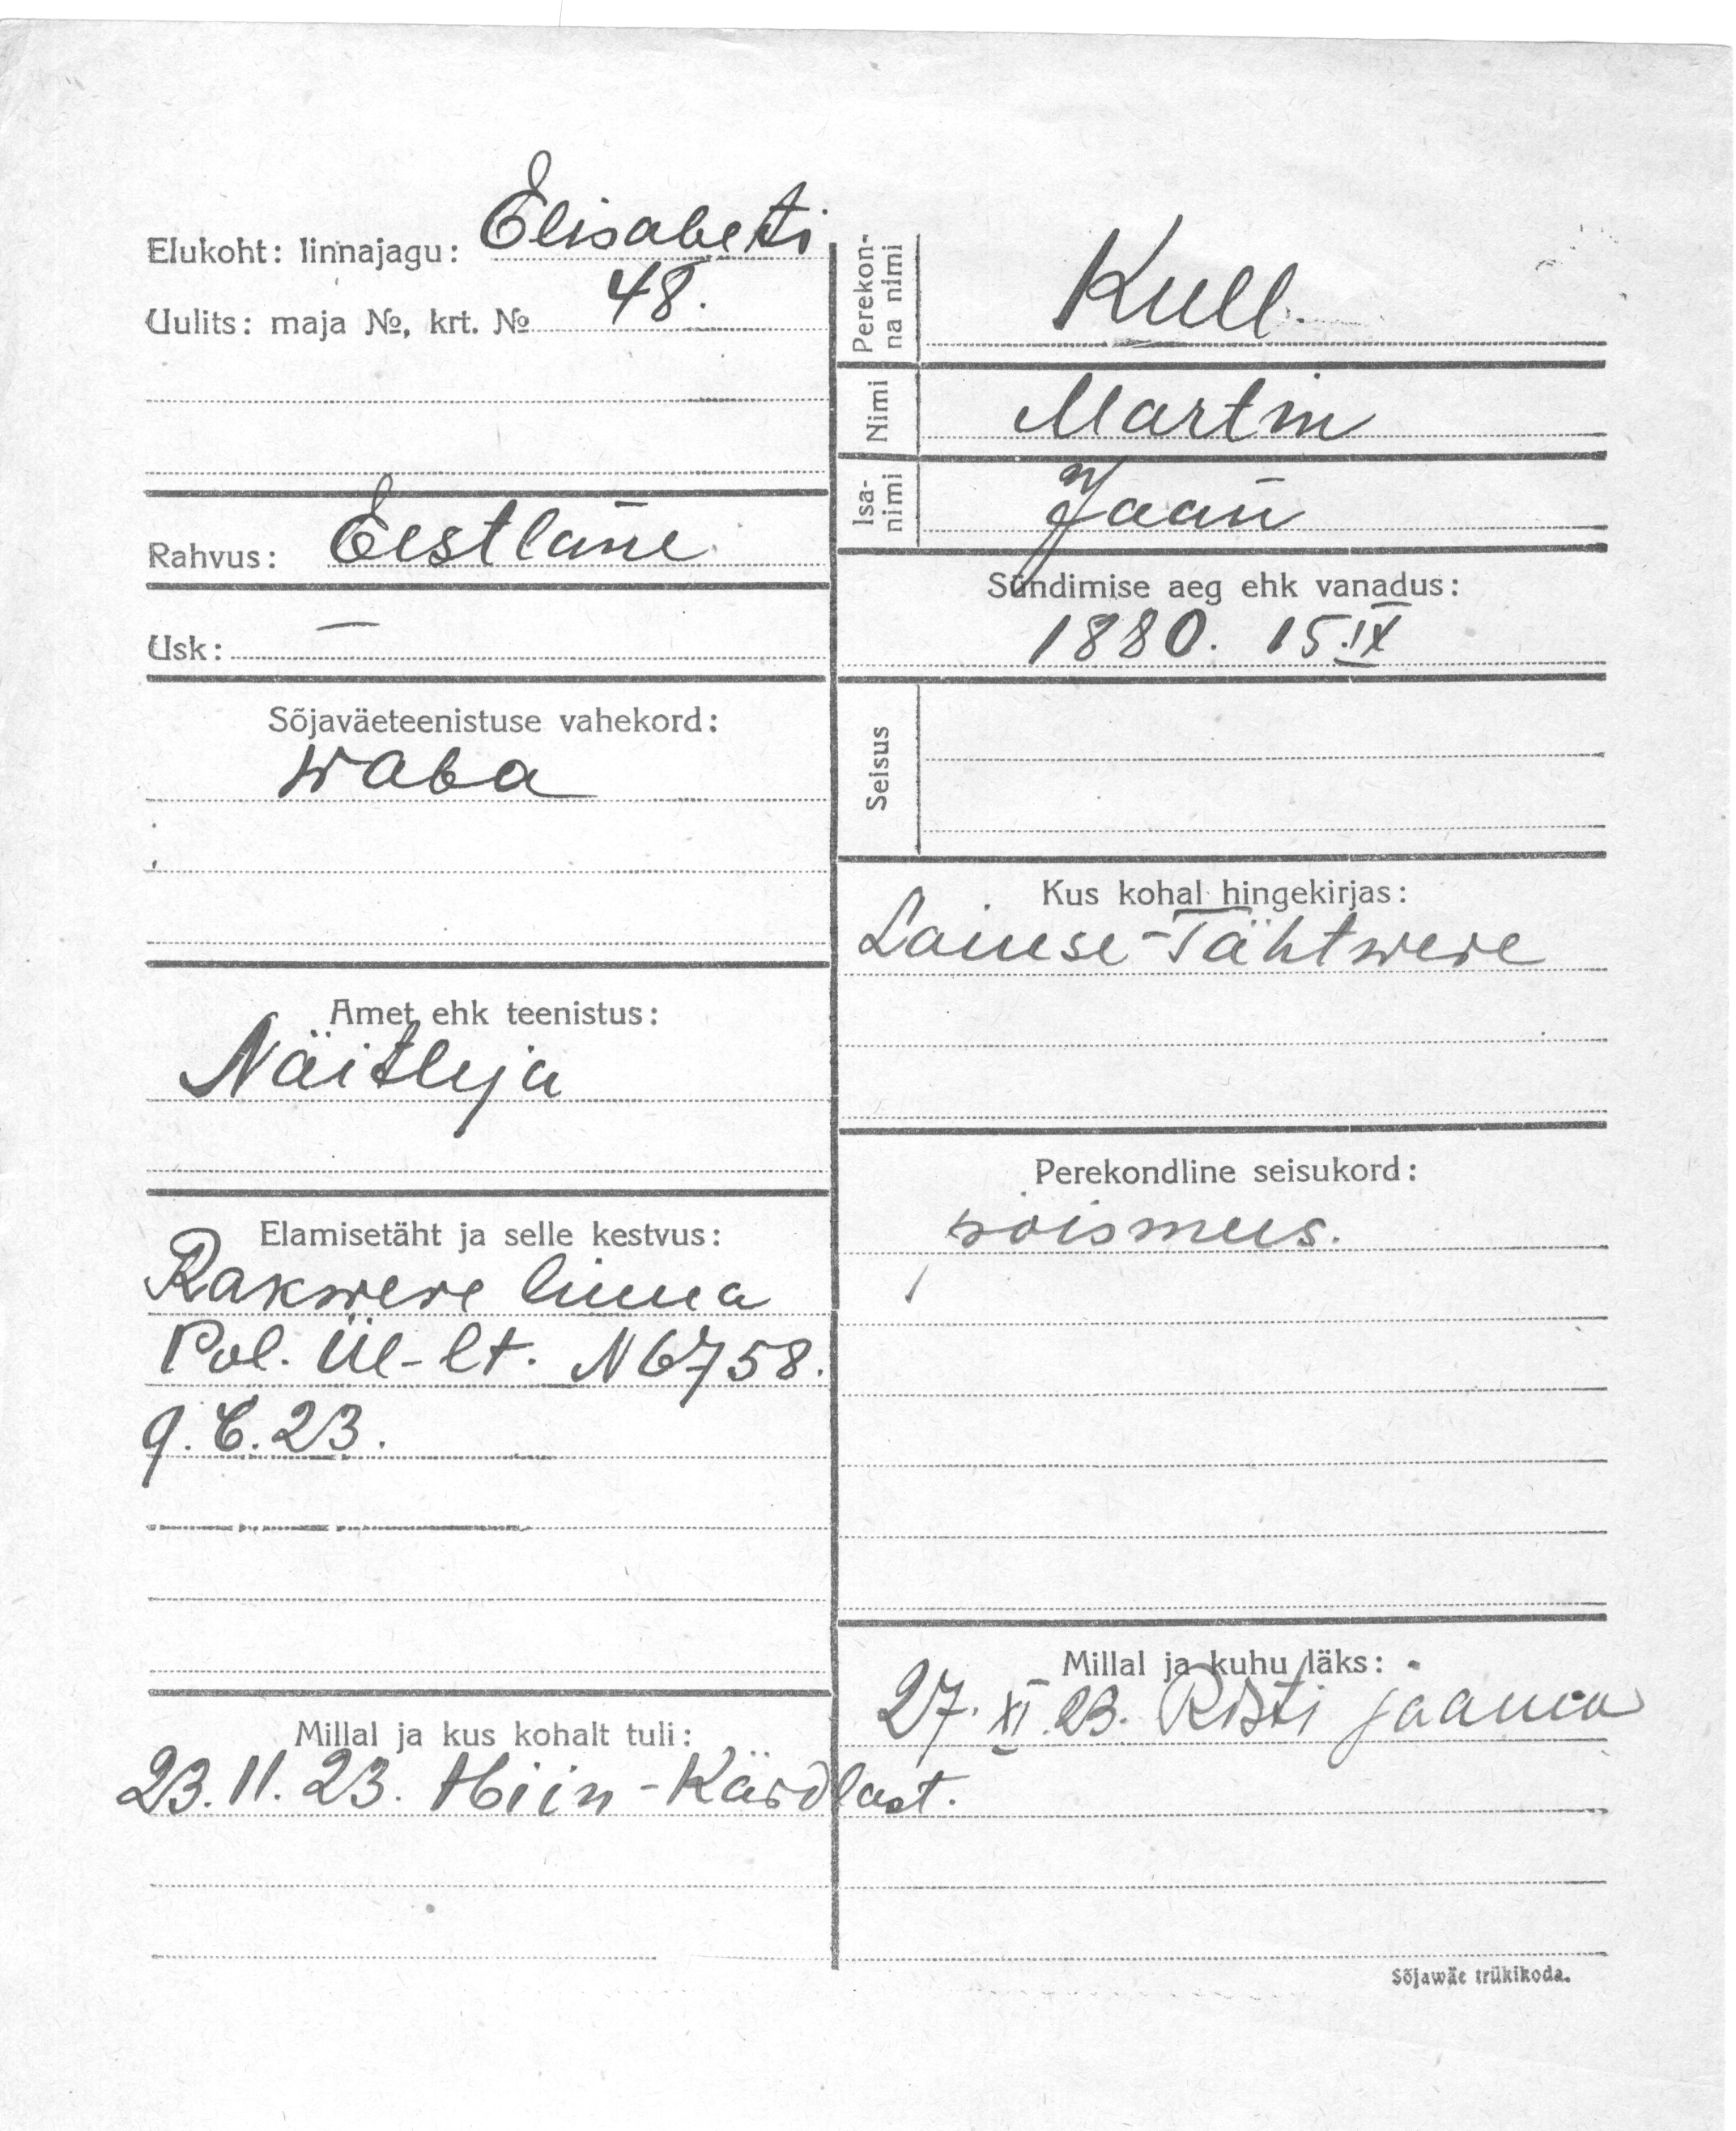 Elukoht: linnajagu: Elisabeti
Uulits: maja №, krt. № 48.
Rahvus: Eestlane
Usk: —
Sõjaväeteenistuse vahekord:
waba
Amet ehk teenistus:
Näitleja
Elamisetäht ja selle kestvus:
Rakwere linna
Pol. Ül-lt. N 6758.
9.6.23.
Millal ja kus kohalt tuli:
23.11.23. Hiiu-Kärdlast.
Perekon-
na nimi Kull.
Nimi Martin
Isa-
nimi Jaan
Sündimise aeg ehk vanadus:
1880. 15.IX
Seisus
Kus kohal hingekirjas:
Laiuse-Tähtwere
Perekondline seisukord:
poismees.
Millal ja kuhu läks:
27. XI.23. Risti jaama
Sõjawäe trükikoda.